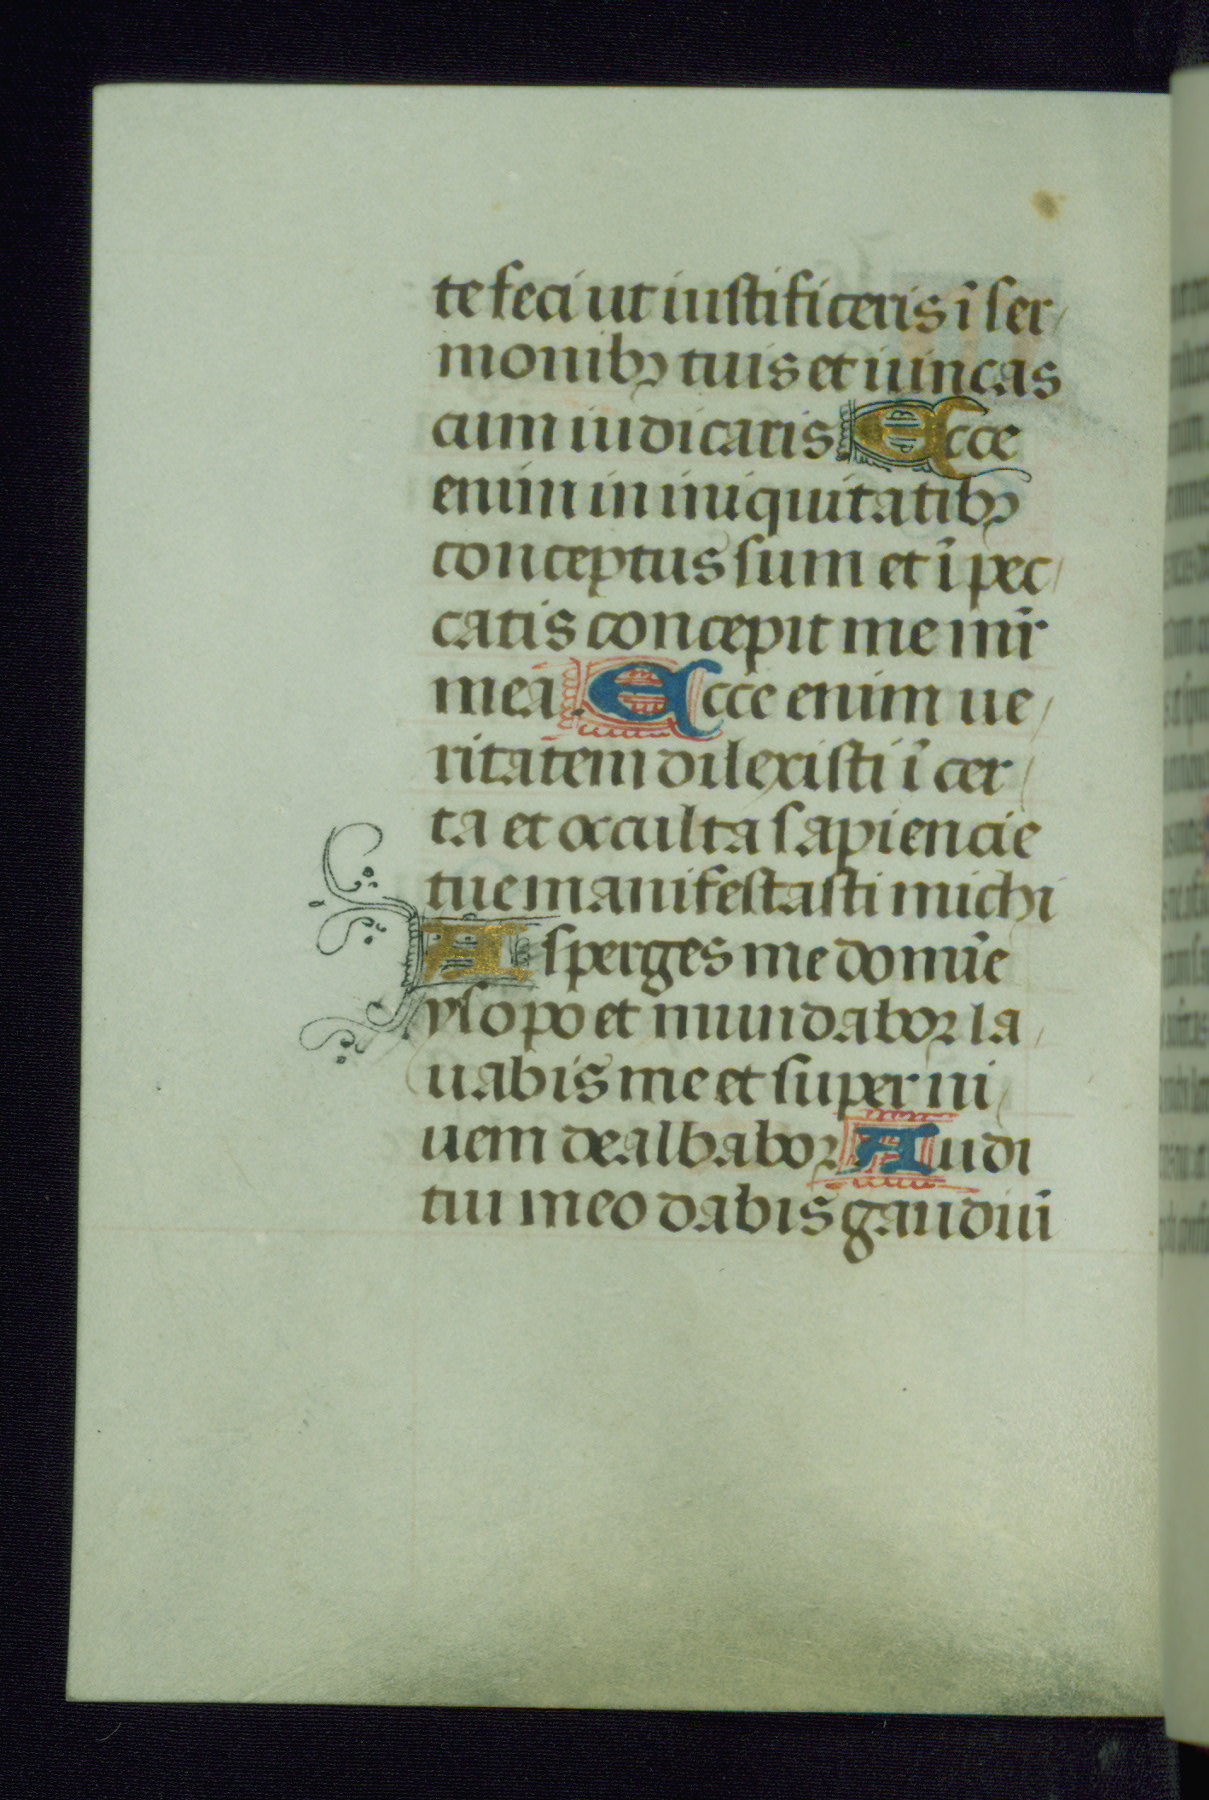 te feci ut iustificeris ī ser
monibꝫ tuis et uincas
cum iudicaris Ecce
enim in iniquitatibꝫ
conceptus sum et ī pec
catis concepit me mr̄
mea. Ecce enim ue
ritatem dilexisti ī cer
ta et occulta sapiencie
tue manifestasti michi
Asperges me domīe
ysopo et mundabor la
uabis me et super ni
uem dealbabor Audi
tui meo dabis gaudiū